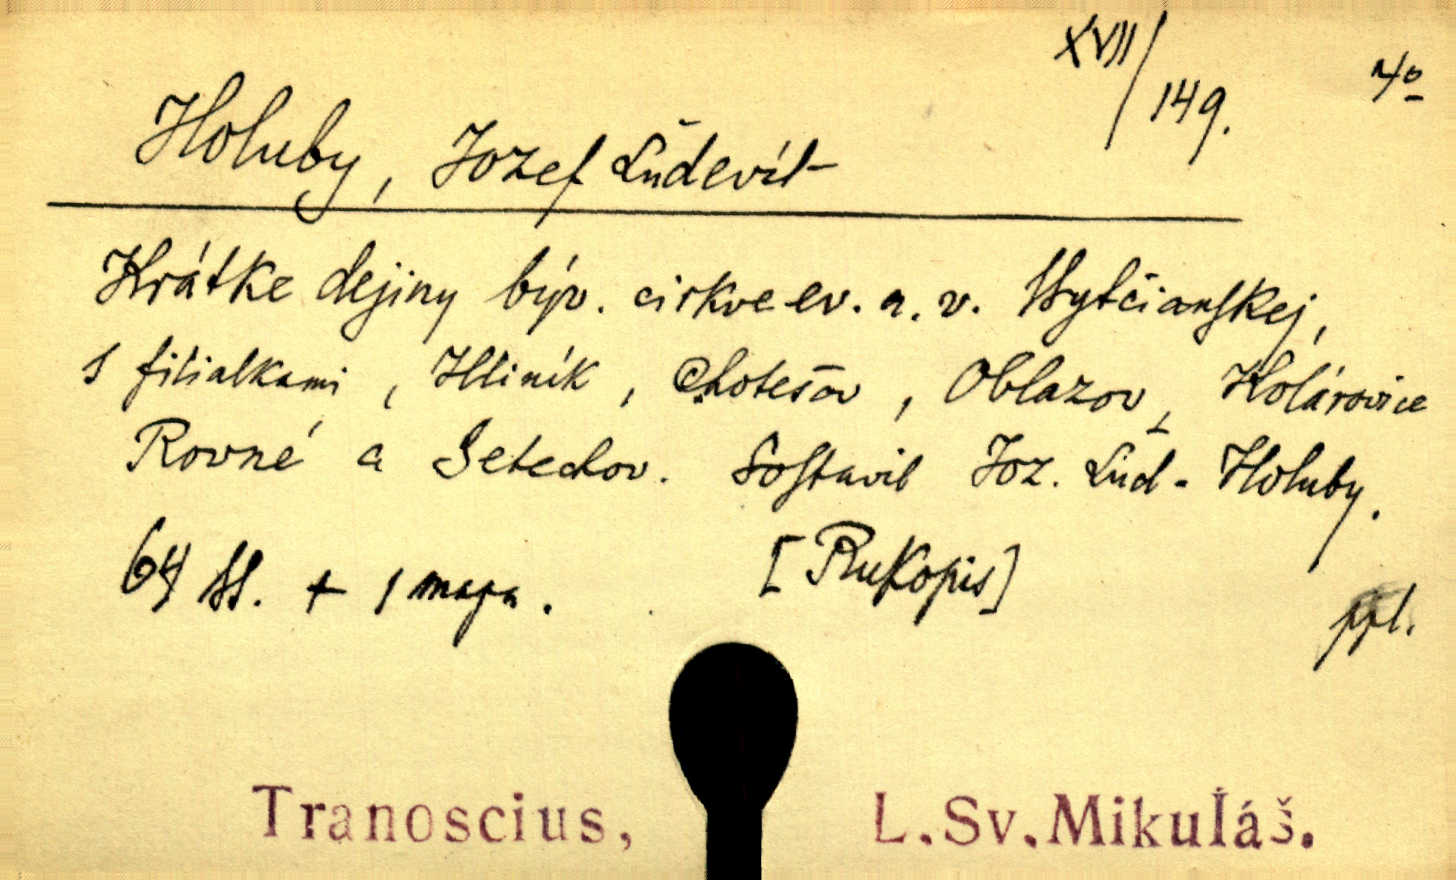 XVII/149. 4º
Holuby, Jozef Ľudevít
Krátke dejiny býv. cirkve ev. a. v. Bytčianskej,
s filialkami, Hliník, Chotešov, Oblazov, Kolárovice
Rovné a Setechov. Sostavil Joz. Ľud. Holuby.
64 ss. + 1 mapa. [Rukopis]
ppl.
Tranoscius, L.Sv.Mikuláš.